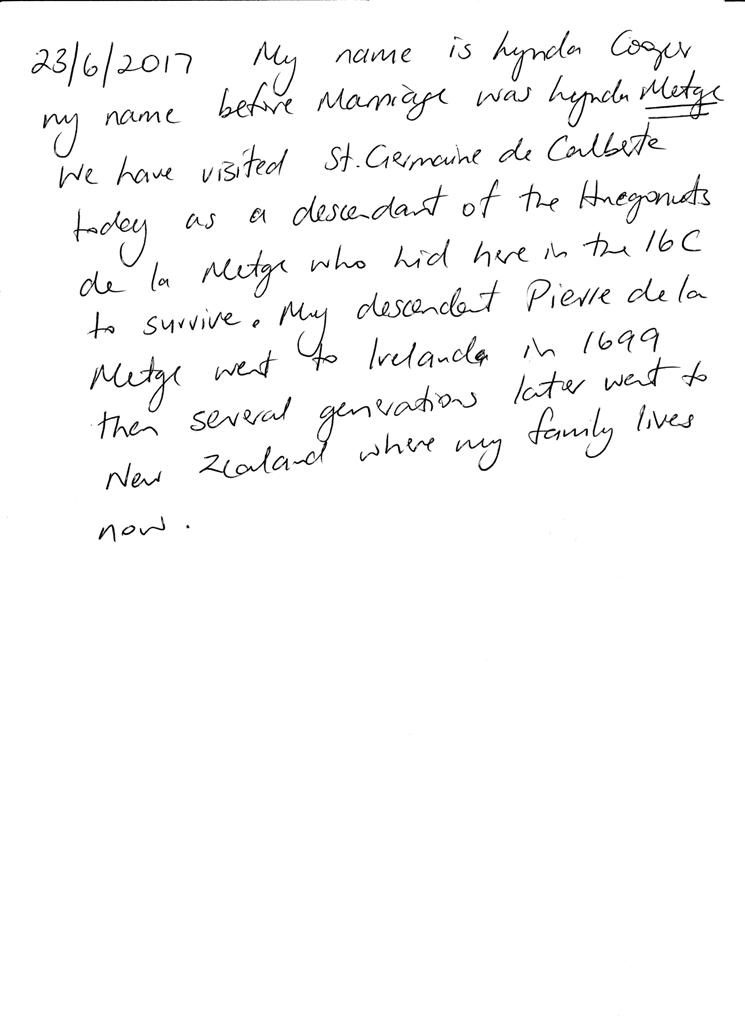 23/6/2017 My name is Lynda Cooper
my name before Marriage was Lynda Metge
We have visited St. Germaine de Calberte
today as a descendant of the Huegonuts
de la Metge who hid here in the 16C
to survive. My descendent Pierre de la
Metge went to Ireland in 1699
then several generations later went to
New Zealand where my family lives
now.